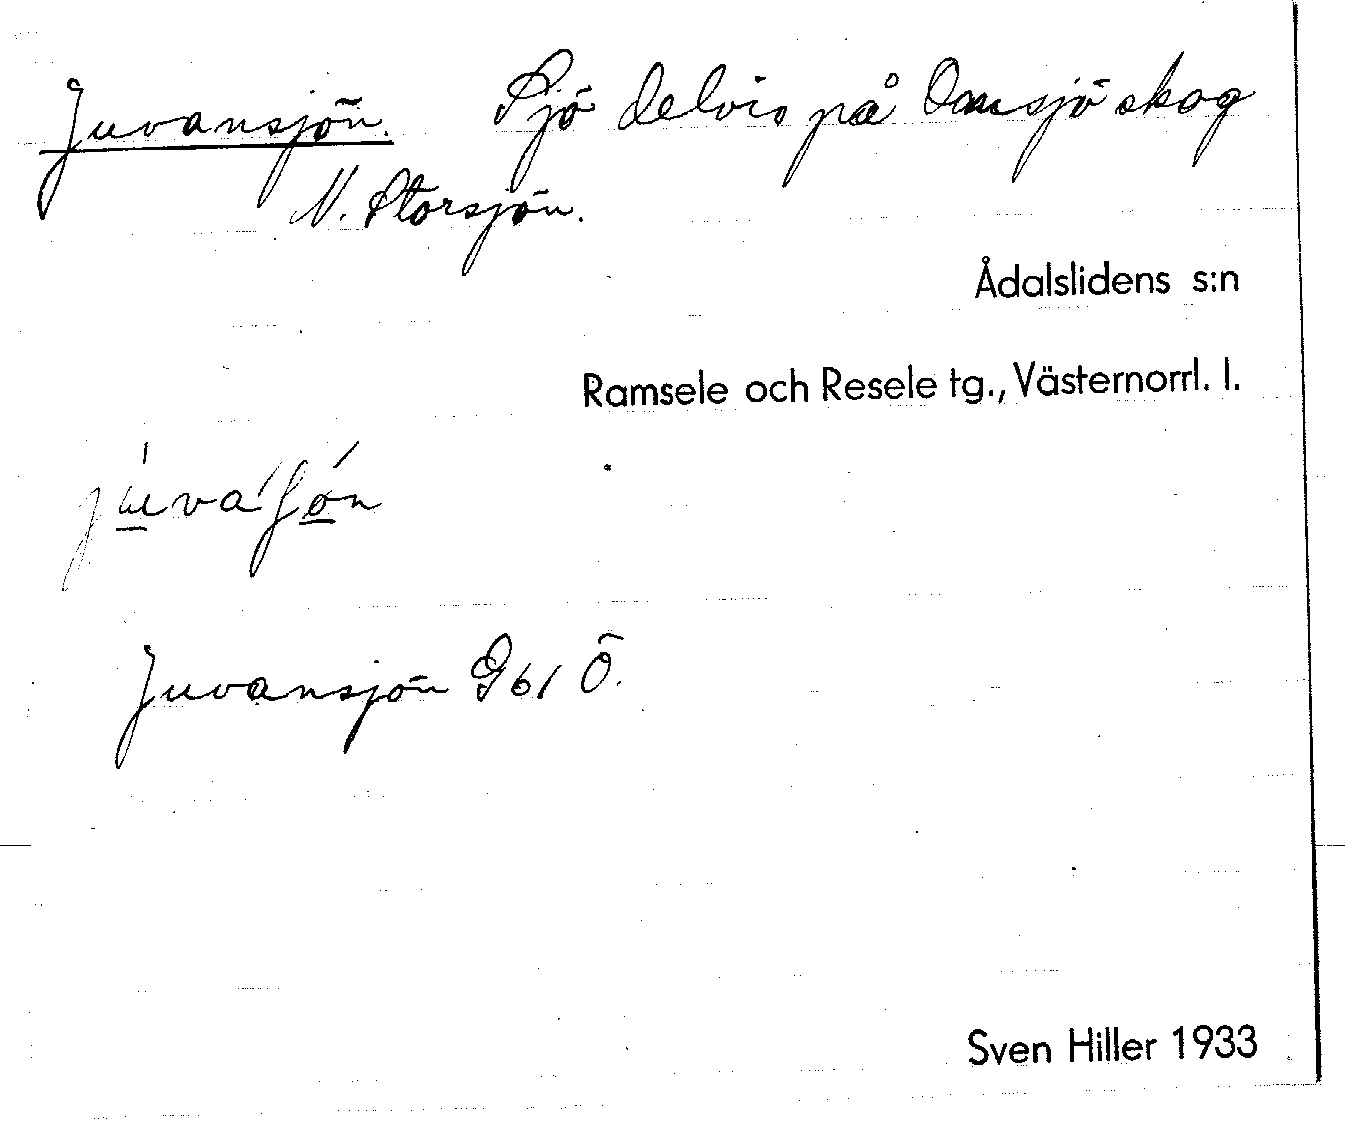 Juvansjön. Sjö delvis på Omsjö skog
N. Storsjön.
Ådalslidens s:n
Ramsele och Resele tg., Västernorrl. l.
Juvansjön G61 Ö.
Sven Hiller 1933